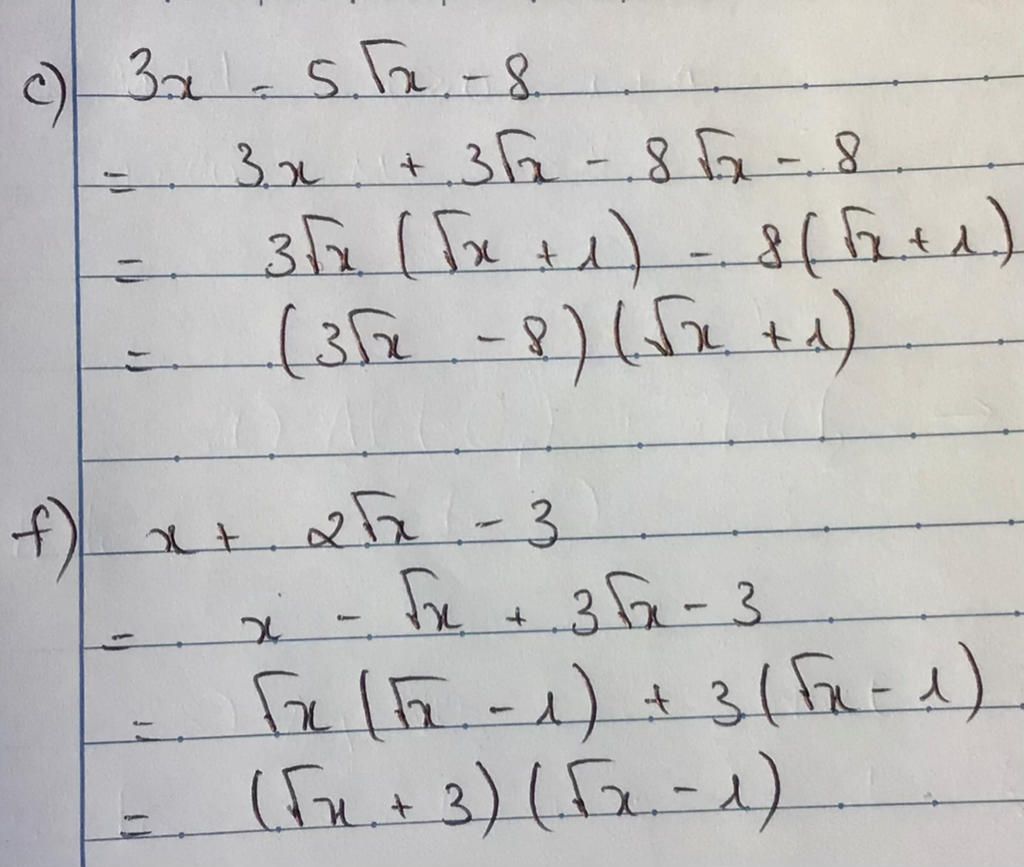 c) 3x - 5√x - 8
= 3x + 3√x - 8√x - 8
= 3√x (√x + 1) - 8(√x + 1)
= (3√x - 8)(√x + 1)
f) x + 2√x - 3
= x - √x + 3√x - 3
= √x (√x - 1) + 3(√x - 1)
= (√x + 3)(√x - 1)